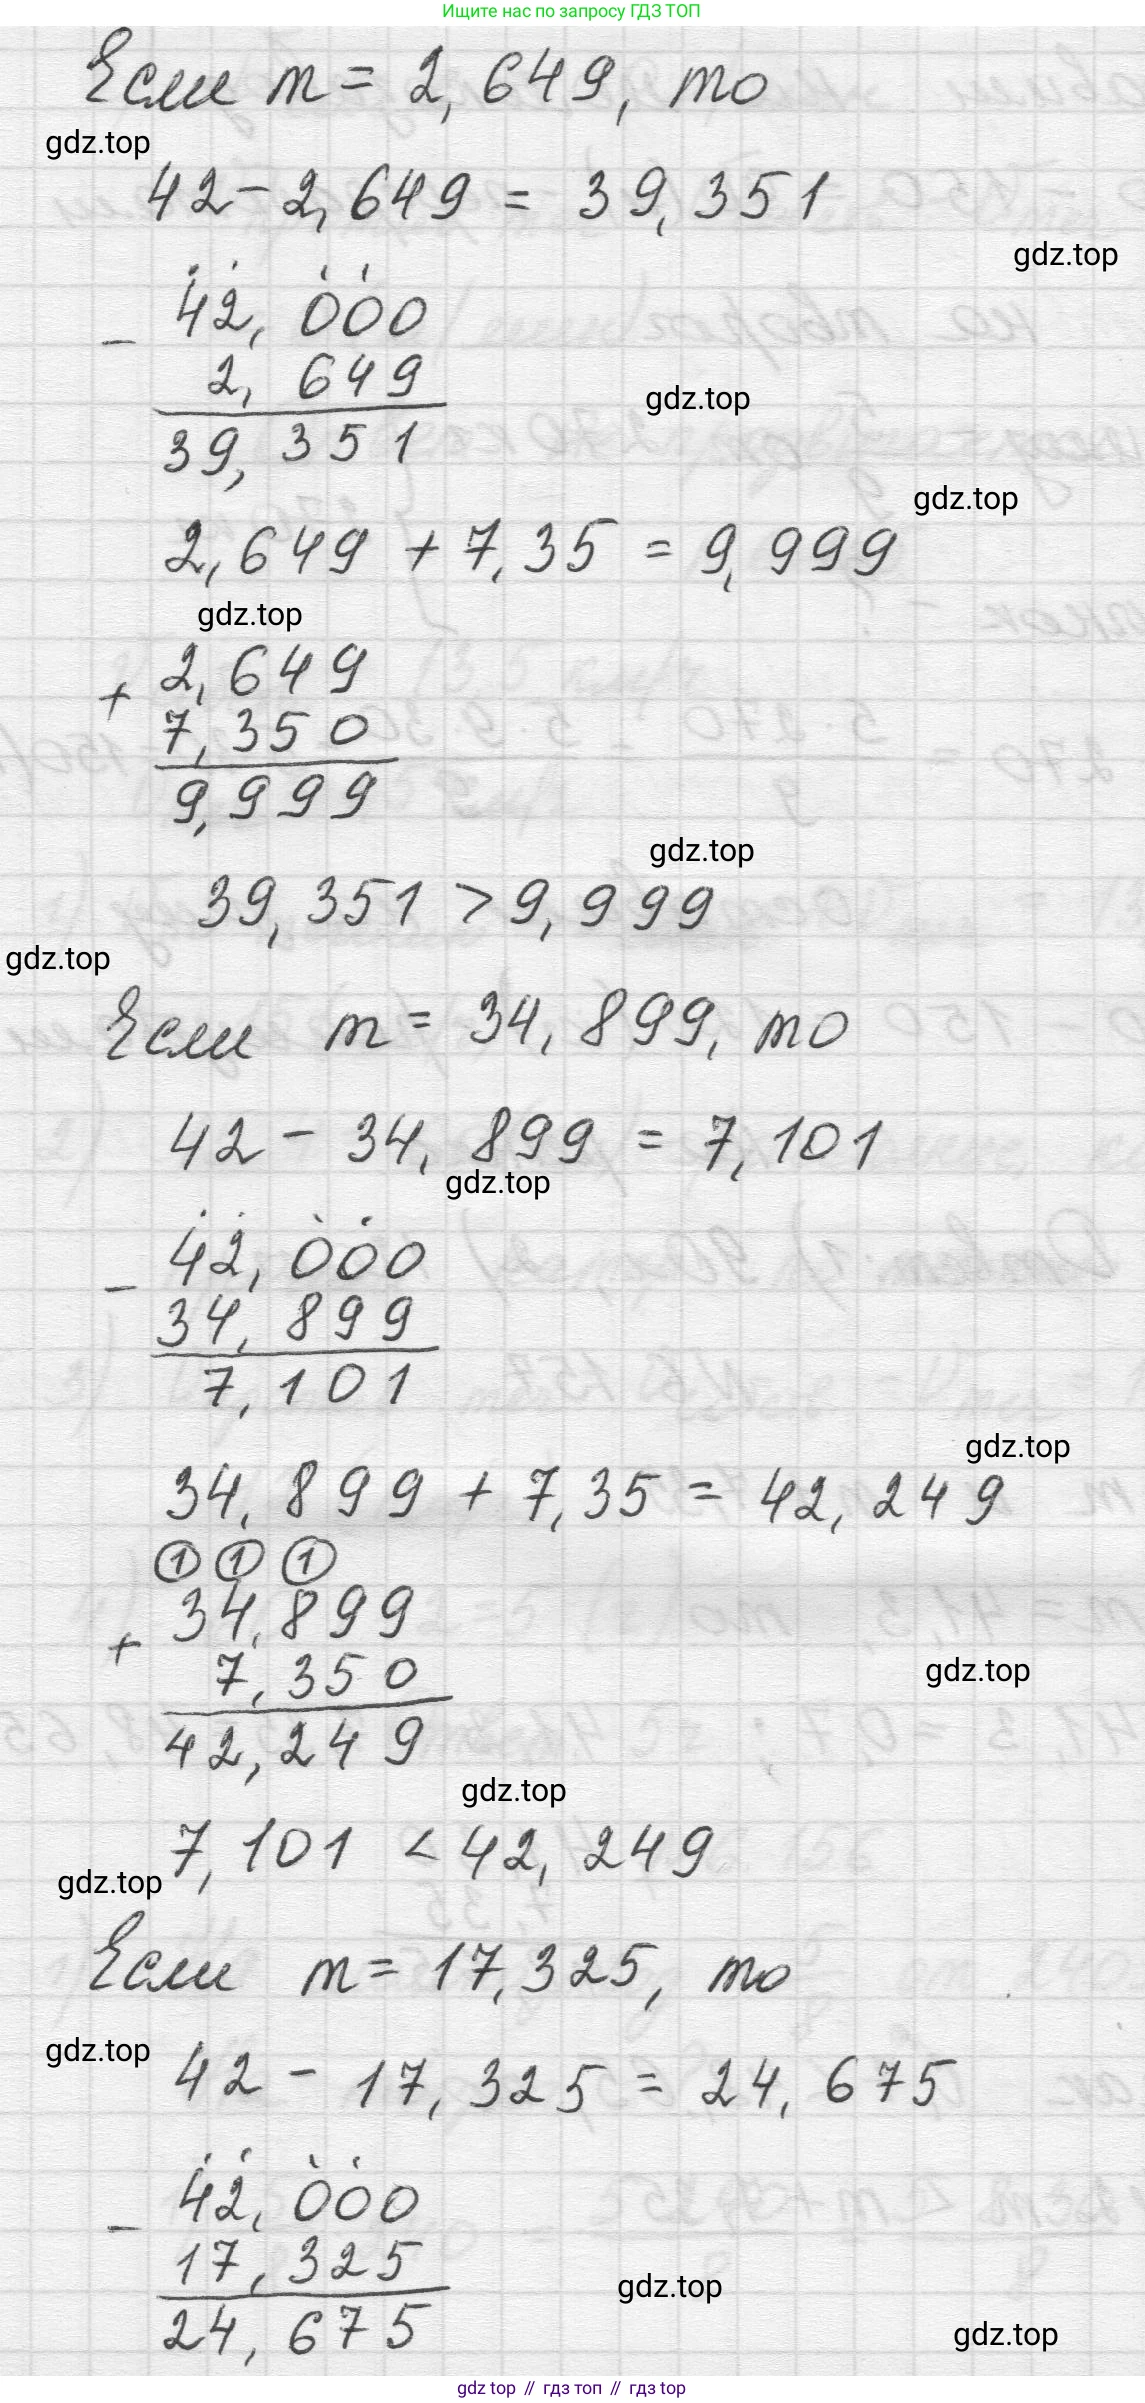 Ищите нас по запросу ГДЗ ТОП
Если m = 2,649, то
gdz.top
42 - 2,649 = 39,351
gdz.top
42,000
-
2,649
gdz.top
39,351
gdz.top
2,649 + 7,35 = 9,999
gdz.top
2,649
+
7,350
9,999
gdz.top
39,351 > 9,999
gdz.top
Если m = 34,899, то
42 - 34,899 = 7,101
gdz.top
42,000
-
34,899
7,101
gdz.top
34,899 + 7,35 = 42,249
1 1 1
34,899
+
7,350
gdz.top
42,249
gdz.top
7,101 < 42,249
gdz.top
Если m = 17,325, то
gdz.top
42 - 17,325 = 24,675
42,000
-
17,325
gdz.top
24,675
gdz.top
gdz top // гдз топ // гдз top